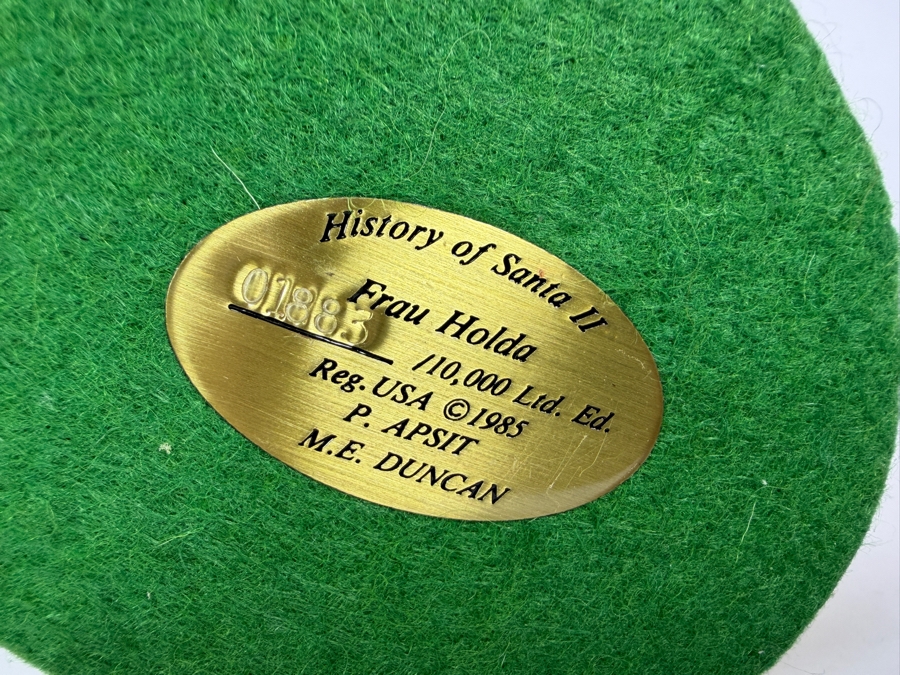 History of Santa II
Frau Holda
01883 /10,000 Ltd. Ed.
Reg. USA ©1985
P. APSIT
M.E. DUNCAN